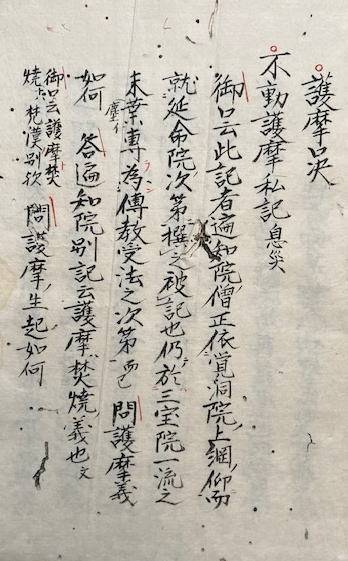 護摩口决
不動護摩私記 息災
御口云此記者遍知院僧正依覚洞院上綱仰而
就延命院次第撰之被記也仍於三宝院一流之
末葉専為傳教受法之次第而已 問護摩義
塵イ
如何 答遍知院別記云護摩焚燒義也文
御口云護摩焚
燒ト梵漢別欤 問護摩生起如何